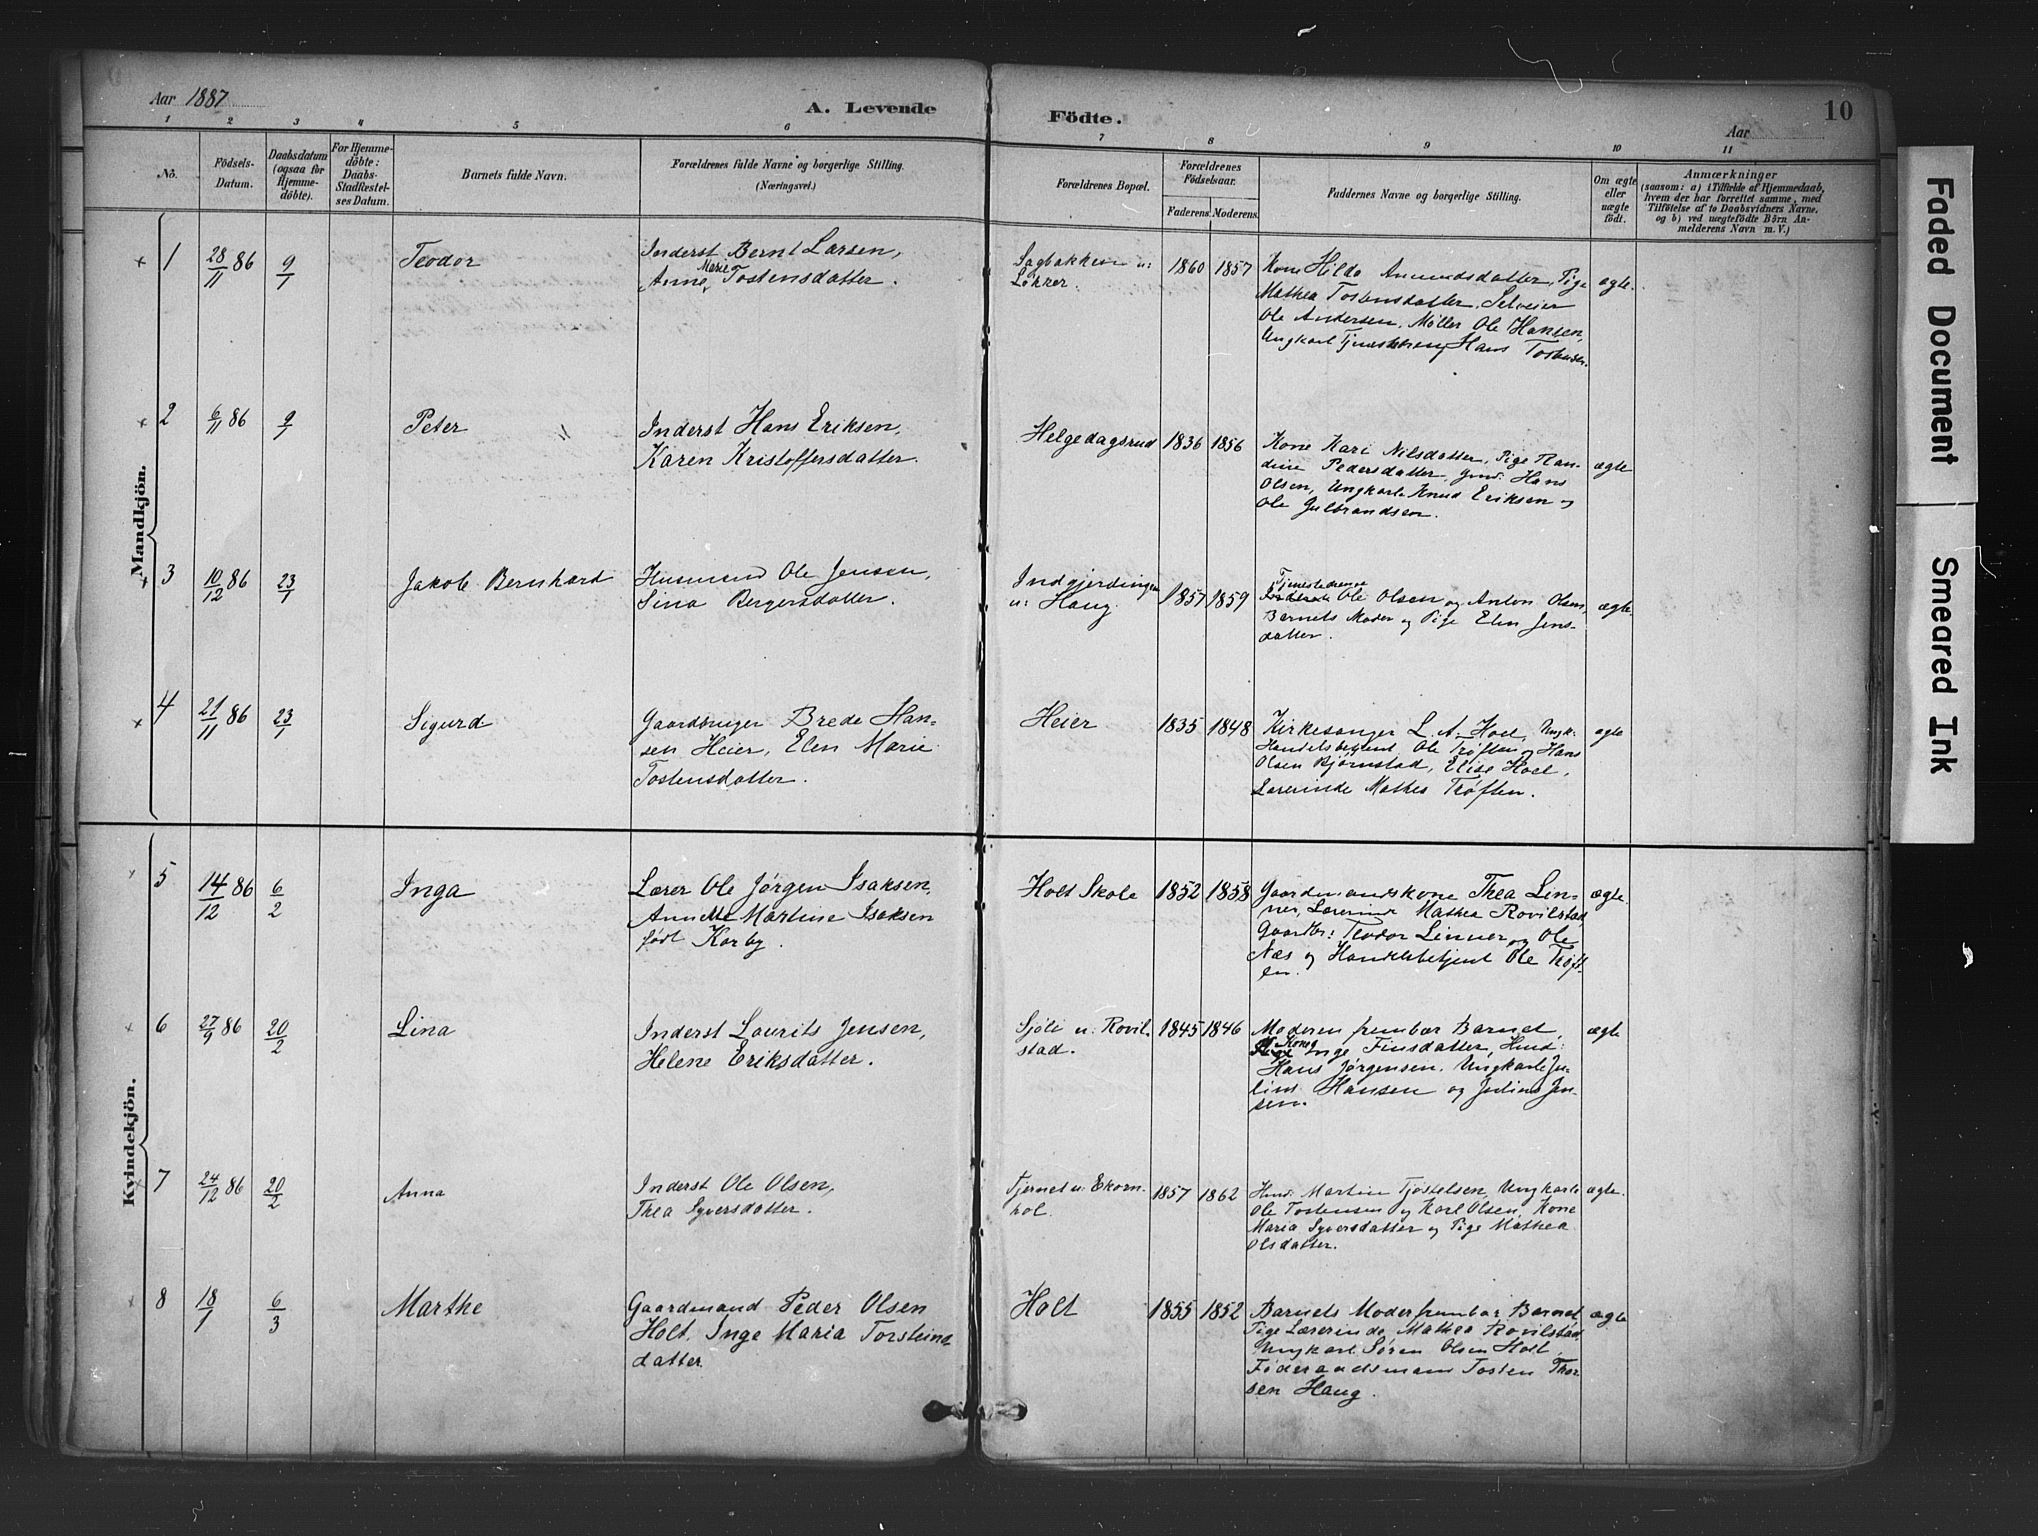 Aar 1887
A. Levende
Födte.
10
Aar
1 2 3 4 5 6 7 8 9 10 11
No.
Födsels-
Datum.
Daabsdatum
(ogsaa for
Hjemme-
döbte).
For Hjemme-
döbte:
Daabs-
Stadfæstel-
ses Datum.
Barnets fulde Navn.
Forældrenes fulde Navne og borgerlige Stilling.
(Næringsvei.)
Forældrenes Bopæl.
Forældrenes
Födselsaar.
Faderens. Moderens.
Faddernes Navne og borgerlige Stilling.
Om ægte
eller
uægte
födt.
Anmærkninger
(saasom: a) i Tilfælde af Hjemmedaab,
hvem der har forrettet samme, med
Tilföielse af to Daabsvidners Navne,
og b) ved uægtefödte Börn An-
melderens Navn m. V.)
Mandkjön.
1
28/11 86
9/1
Teodor
Inderst Bernt Larsen,
Marie
Anne Tostensdatter.
Sagbakken u:
Løkker.
1860 1857
Kone Hilda Amundsdatter, Pige
Mathea Tostensdatter, Selveier
Ole Andersen, Møller Ole Hansen,
Ungkarl Tjenestedreng Hans Tostensen.
ægte.
2
6/11 86
9/1
Peter
Inderst Hans Eriksen,
Karen Kristoffersdatter.
Helgedagsrud
1836 1856
Kone Kari Nilsdatter, Pige Ran-
dine Pedersdatter, Hans
Olsen, Ungkarle Knud Eriksen og
Ole Gulbrandsen.
ægte
3
10/12 86
23/1
Jakob Bernhard
Husmand Ole Jensen,
Sina Bergersdatter.
Indgjerdingen
u: Haug.
1857 1859
Tjenestedrenge
Ole Olsen og Anton Olsen,
Barnets Moder og Pige Elen Jens-
datter.
ægte
4
21/11 86
23/1
Sigurd
Gaardbruger Brede Han-
sen Heier, Elen Marie
Tostensdatter.
Heier
1835 1848
Kirkesanger L. A. Hoel, Ungk.
Handelsbetjent Ole Trøften og Hans
Olsen Bjørnstad, Elise Hoel,
Lærerinde Mathea Trøften.
ægte
Kvindekjön.
5
14/12 86
6/2
Inga
Lærer Ole Jørgen Isaksen,
Annette Martine Isaksen
født Korby.
Holt Skole
1852 1858
Gaardmandskone Thea Lin-
ner, Lærerinde Mathea Rovilstad,
Gaardbr: Teodor Linner og Ole
Næs og Handelsbetjent Ole Trøft-
en.
ægte.
6
27/9 86
20/2
Lina
Inderst Laurits Jensen,
Helene Eriksdatter.
Sjøli u: Rovil-
stad.
1845 1846
Moderen frembar Barnet,
Kone
Inge Finsdatter, Husd:
Hans Jørgensen, Ungkarle Ju-
lius Hansen og Julius Jen-
sen.
ægte
7
24/12 86
20/2
Anna
Inderst Ole Olsen,
Thea Syversdatter.
Tjernet u: Ekorn-
hol.
1857 1862
Husd: Martin Tjøstelsen, Ungkarle
Ole Tostensen og Karl Olsen, Kone
Maria Syversdatter og Pige Mathea
Olsdatter.
ægte.
8
18/1
6/3
Marthe
Gaardmand Peder Olsen
Holt, Inge Maria Torsteins-
datter
Holt
1855 1852
Barnets Moder frembar Barnet,
Pige Lærerinde Mathea Rovilstad,
Ungkarl Søren Olsen Holt,
Føderaadsmand Tosten Thor-
sen Haug.
ægte
Faded Document
Smeared Ink